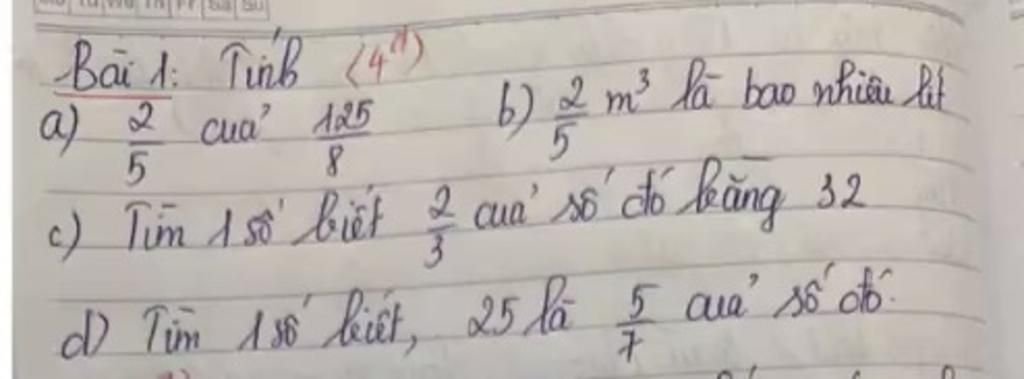 Mo Tu We Th Fr Sa Su
Bài 1: Tính (4đ)
a) 2/5 của 125/8 b) 2/5 m³ là bao nhiêu lít
c) Tìm 1 số biết 2/3 của số đó bằng 32
d) Tìm 1 số biết, 25 là 5/7 của số đó.